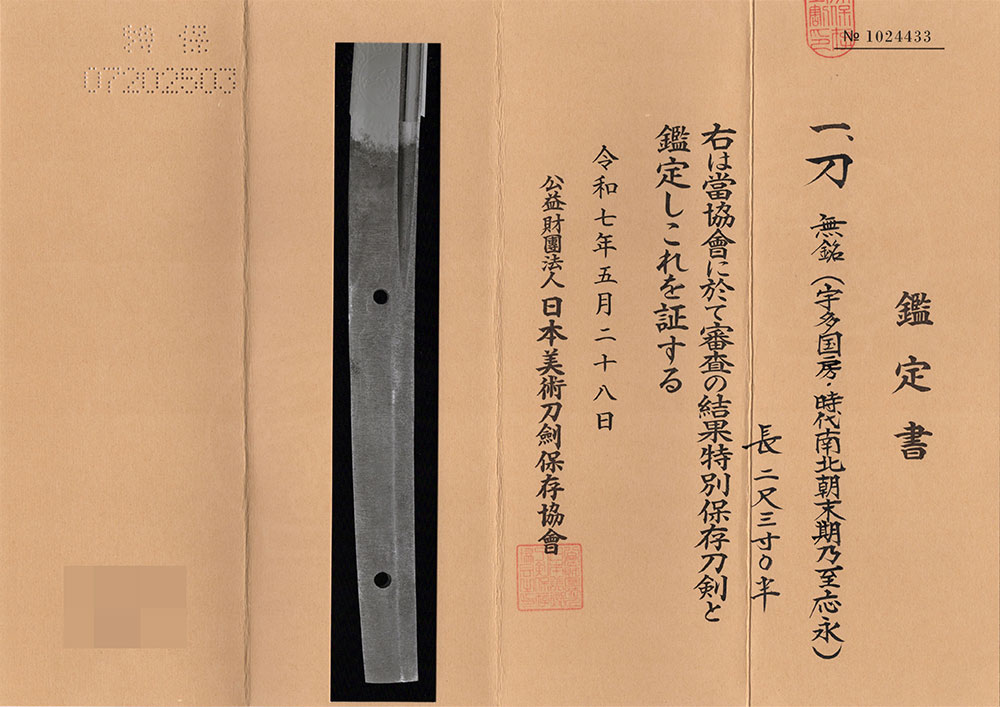 № 1024433
鑑定書
一、刀 無銘(宇多国房・時代南北朝末期乃至応永)
長二尺三寸0半
右は當協會に於て審査の結果特別保存刀剣と
鑑定しこれを証する
令和七年五月二十八日
公益財團法人 日本美術刀劍保存協會
特保
07202503